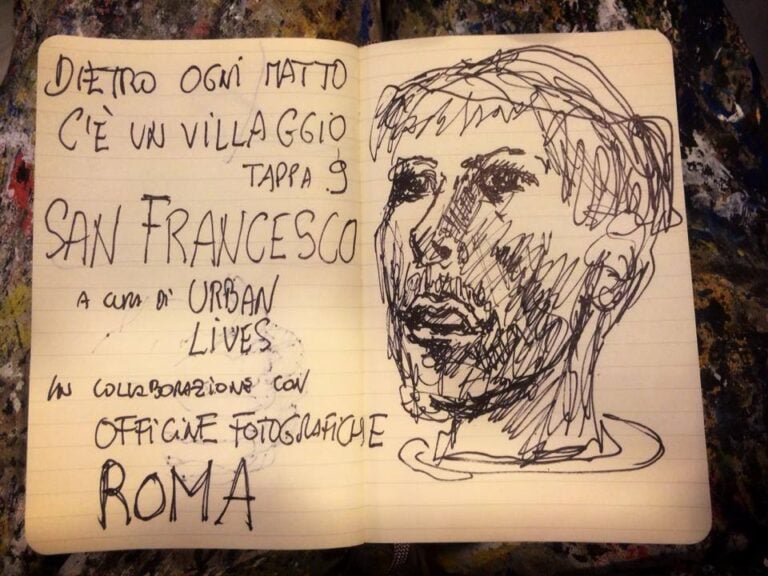 DIETRO OGNI MATTO
C'È UN VILLAGGIO
TAPPA 9
SAN FRANCESCO
A CURA DI URBAN
LIVES
IN COLLABORAZIONE CON
OFFICINE FOTOGRAFICHE
ROMA